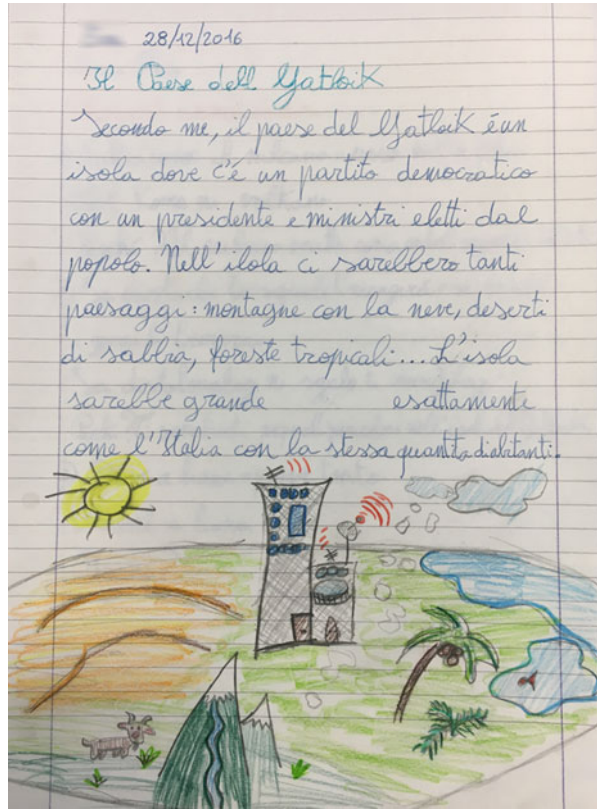 28/12/2016
Il Paese dell Yatloik
Secondo me, il paese del Yatloik è un
isola dove c'é un partito democratico
con un presidente e ministri eletti dal
popolo. Nell'ilola ci sarebbero tanti
paesaggi: montagne con la neve, deserti
di sabbia, foreste tropicali... L'isola
sarebbe grande esattamente
come l'Italia con la stessa quantità diabitanti.